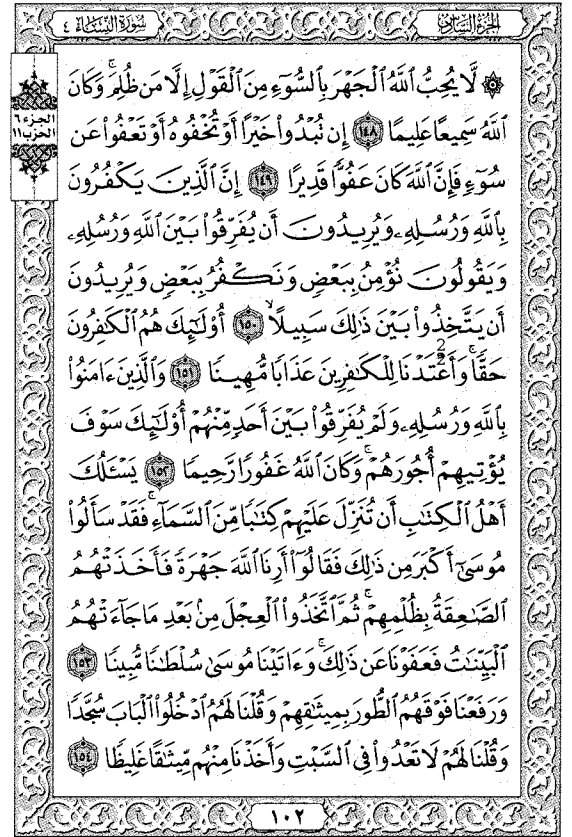 الجزء السادس
سورة النساء ٤
الجزء ٦
الحزب ١١
۞ لَّا يُحِبُّ ٱللَّهُ ٱلْجَهْرَ بِٱلسُّوٓءِ مِنَ ٱلْقَوْلِ إِلَّا مَن ظُلِمَ ۚ وَكَانَ
ٱللَّهُ سَمِيعًا عَلِيمًا ١٤٨ إِن تُبْدُوا۟ خَيْرًا أَوْ تُخْفُوهُ أَوْ تَعْفُوا۟ عَن
سُوٓءٍ فَإِنَّ ٱللَّهَ كَانَ عَفُوًّا قَدِيرًا ١٤٩ إِنَّ ٱلَّذِينَ يَكْفُرُونَ
بِٱللَّهِ وَرُسُلِهِۦ وَيُرِيدُونَ أَن يُفَرِّقُوا۟ بَيْنَ ٱللَّهِ وَرُسُلِهِۦ
وَيَقُولُونَ نُؤْمِنُ بِبَعْضٍ وَنَكْفُرُ بِبَعْضٍ وَيُرِيدُونَ
أَن يَتَّخِذُوا۟ بَيْنَ ذَٰلِكَ سَبِيلًا ١٥٠ أُو۟لَـٰٓئِكَ هُمُ ٱلْكَـٰفِرُونَ
حَقًّا ۚ وَأَعْتَدْنَا لِلْكَـٰفِرِينَ عَذَابًا مُّهِينًا ١٥١ وَٱلَّذِينَ ءَامَنُوا۟
بِٱللَّهِ وَرُسُلِهِۦ وَلَمْ يُفَرِّقُوا۟ بَيْنَ أَحَدٍ مِّنْهُمْ أُو۟لَـٰٓئِكَ سَوْفَ
يُؤْتِيهِمْ أُجُورَهُمْ ۗ وَكَانَ ٱللَّهُ غَفُورًا رَّحِيمًا ١٥٢ يَسْـَٔلُكَ
أَهْلُ ٱلْكِتَـٰبِ أَن تُنَزِّلَ عَلَيْهِمْ كِتَـٰبًا مِّنَ ٱلسَّمَآءِ ۚ فَقَدْ سَأَلُوا۟
مُوسَىٰٓ أَكْبَرَ مِن ذَٰلِكَ فَقَالُوٓا۟ أَرِنَا ٱللَّهَ جَهْرَةً فَأَخَذَتْهُمُ
ٱلصَّـٰعِقَةُ بِظُلْمِهِمْ ۚ ثُمَّ ٱتَّخَذُوا۟ ٱلْعِجْلَ مِنۢ بَعْدِ مَا جَآءَتْهُمُ
ٱلْبَيِّنَـٰتُ فَعَفَوْنَا عَن ذَٰلِكَ ۚ وَءَاتَيْنَا مُوسَىٰ سُلْطَـٰنًا مُّبِينًا ١٥٣
وَرَفَعْنَا فَوْقَهُمُ ٱلطُّورَ بِمِيثَـٰقِهِمْ وَقُلْنَا لَهُمُ ٱدْخُلُوا۟ ٱلْبَابَ سُجَّدًا
وَقُلْنَا لَهُمْ لَا تَعْدُوا۟ فِى ٱلسَّبْتِ وَأَخَذْنَا مِنْهُم مِّيثَـٰقًا غَلِيظًا ١٥٤
١٠٢